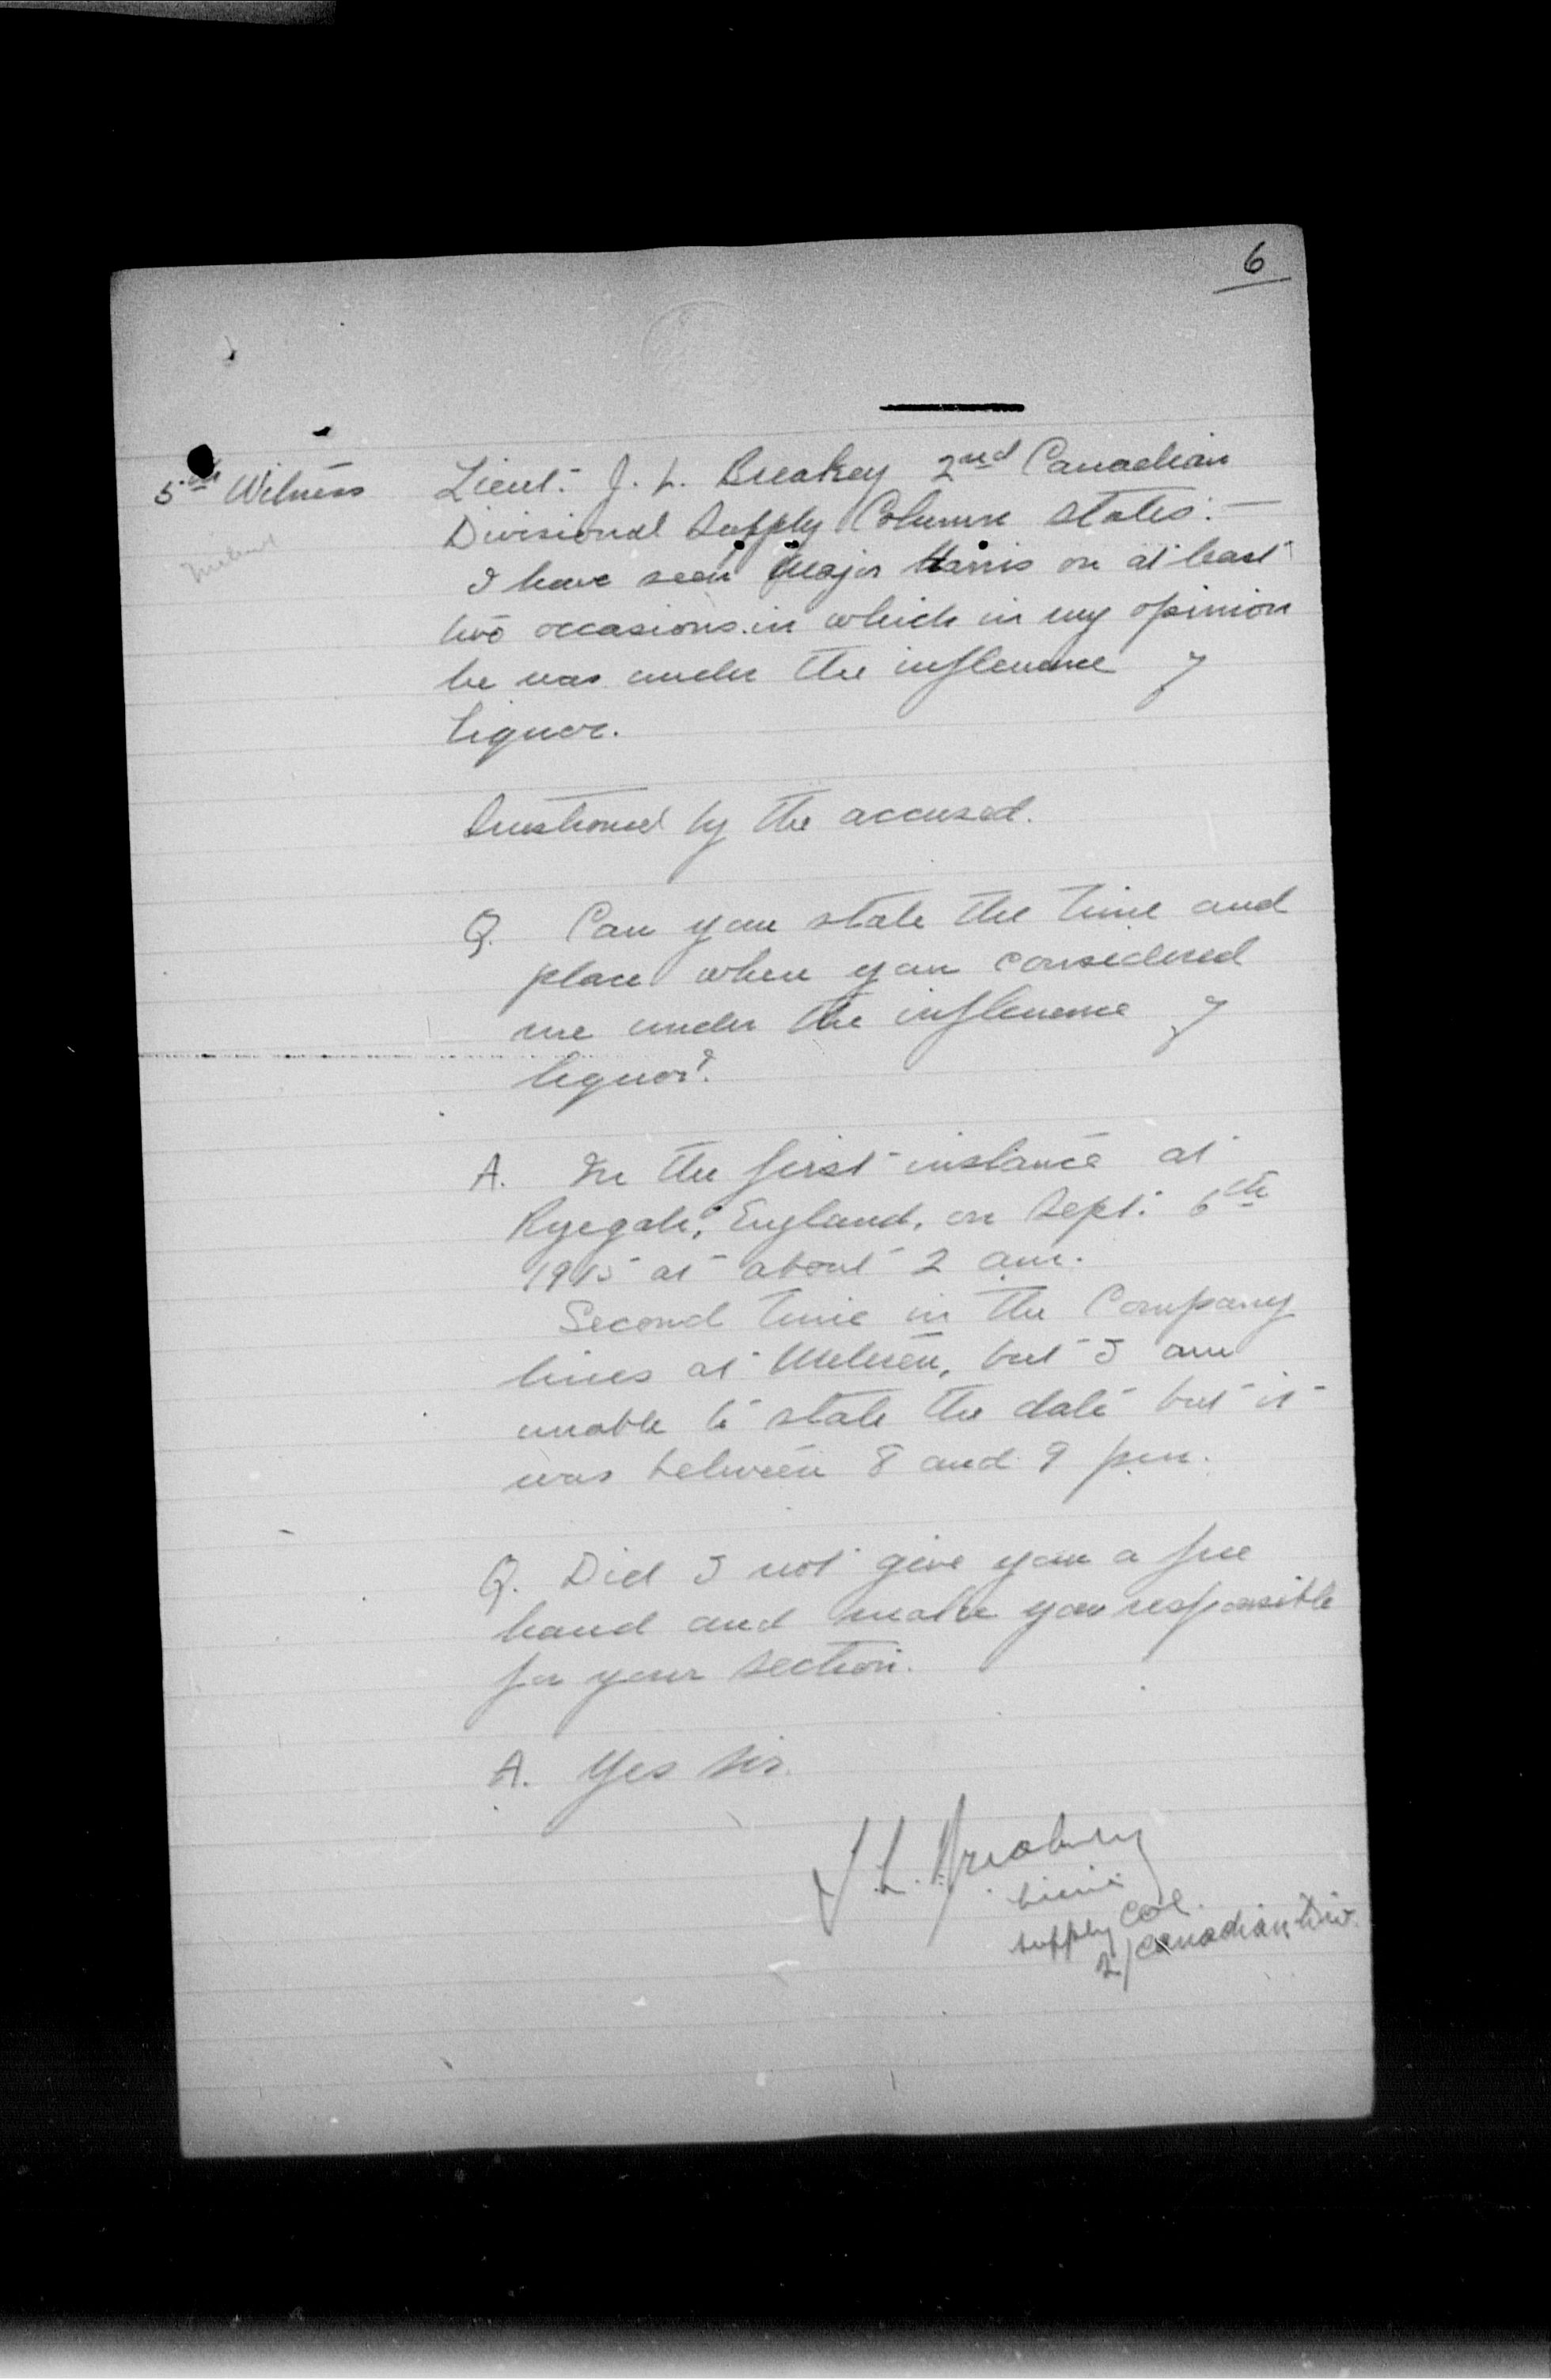 6
5th Witness
Lieut. J. L. Breakey 2nd Canadian
Divisional Supply Column states:—
I have seen Major Harris on at least
two occasions in which in my opinion
he was under the influence of
liquor.
Questioned by the accused.
Q. Can you state the time and
place when you considered
me under the influence of
liquor?
A. In the first instance at
Ryegate, England, on Sept. 6th
1915 at about 2 am.
Second time in the Company
lines at Meteren, but I am
unable to state the date but it
was between 8 and 9 pm.
Q. Did I not give you a free
hand and make you responsible
for your section.
A. Yes sir.
J L. Breakey
Lieut.
Supply Col.
2/Canadian Div.